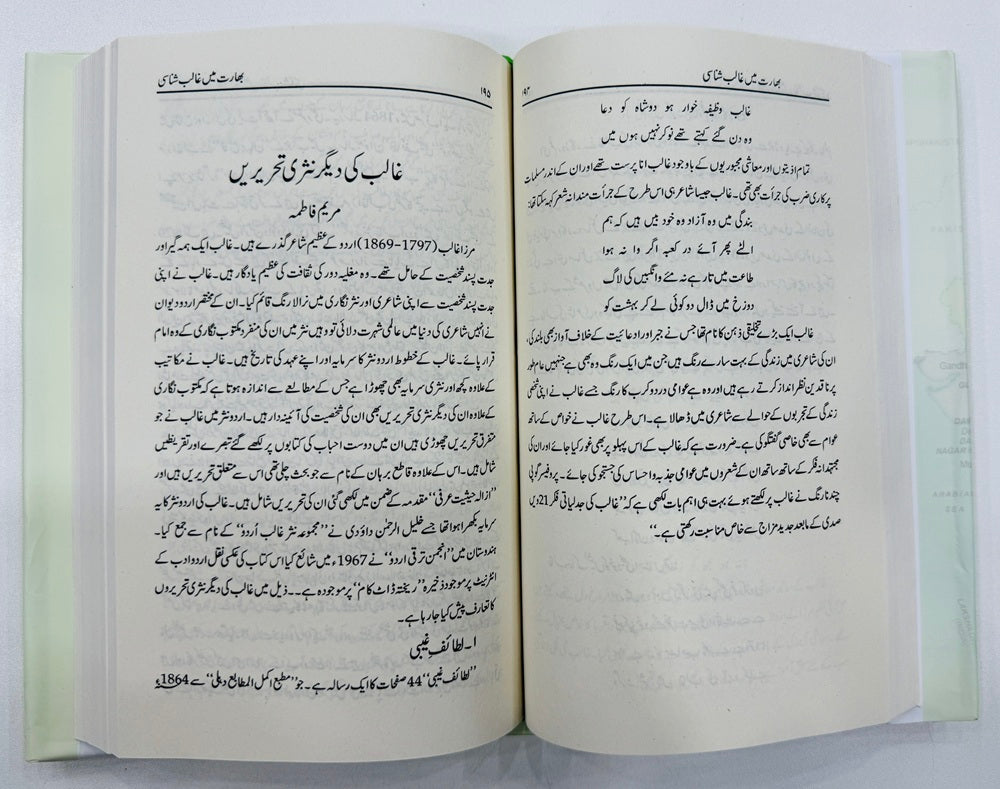 بھارت میں غالب شناسی
۱۹۴
غالب وظیفہ خوار ہو دو شاہ کو دعا
وہ دن گئے کہتے تھے نوکر نہیں ہوں میں
تمام اذیتوں اور معاشی مجبوریوں کے باوجود غالب انا پرست تھے اور ان کے اندر مسلمات
پر کاری ضرب کی جرأت بھی تھی۔ غالب جیسا شاعر ہی اس طرح کے جرأت مندانہ شعر کہہ سکتا تھا:
بندگی میں وہ آزاد وہ خود بیں ہیں کہ ہم
الٹے پھر آئے در کعبہ اگر وا نہ ہوا
طاعت میں تار ہے نہ مئے وانگبیں کی لاگ
دوزخ میں ڈال دو کوئی لے کر بہشت کو
غالب ایک بڑے تخلیقی ذہن کا نام تھا جس نے جبر اور ادعائیت کے خلاف آواز بھی بلند کی،
ان کی شاعری میں زندگی کے بہت سارے رنگ ہیں جن میں ایک رنگ وہ بھی ہے جنہیں عام طور
پر ناقدین نظر انداز کرتے رہے ہیں اور وہ ہے عوامی درد و کرب کا رنگ جسے غالب نے اپنی شخصی
زندگی کے تجربوں کے حوالے سے شاعری میں ڈھالا ہے۔ اس طرح غالب نے خواص کے ساتھ
عوام سے بھی خاصی گفتگو کی ہے۔ ضرورت ہے کہ غالب کے اس پہلو پر بھی غور کیا جائے اور ان کی
مجتہدانہ فکر کے ساتھ ساتھ ان کے شعروں میں عوامی جذبہ و احساس کی جستجو کی جائے۔ پروفیسر گوپی
چند نارنگ نے غالب پر لکھتے ہوئے بہت ہی اہم بات لکھی ہے کہ ”غالب کی جدلیاتی فکر 21ویں
صدی کے مابعد جدید مزاج سے خاص مناسبت رکھتی ہے۔“
بھارت میں غالب شناسی
۱۹۵
غالب کی دیگر نثری تحریریں
مریم فاطمہ
مرزا غالب (1797-1869) اردو کے عظیم شاعر گذرے ہیں۔ غالب ایک ہمہ گیر اور
جدت پسند شخصیت کے حامل تھے۔ وہ مغلیہ دور کی ثقافت کی عظیم یادگار ہیں۔ غالب نے اپنی
جدت پسند شخصیت سے اپنی شاعری اور نثر نگاری میں نرالا رنگ قائم کیا۔ ان کے مختصر اردو دیوان
نے انہیں شاعری کی دنیا میں عالمی شہرت دلائی تو وہیں نثر میں ان کی منفرد مکتوب نگاری کے وہ امام
قرار پائے۔ غالب کے خطوط اردو نثر کا سرمایہ اور اپنے عہد کی تاریخ ہیں۔ غالب نے مکاتیب
کے علاوہ کچھ اور نثری سرمایہ بھی چھوڑا ہے جس کے مطالعے سے اندازہ ہوتا ہے کہ مکتوب نگاری
کے علاوہ ان کی دیگر نثری تحریریں بھی ان کی شخصیت کی آئینہ دار ہیں۔ اردو نثر میں غالب نے جو
متفرق تحریریں چھوڑی ہیں ان میں دوست احباب کی کتابوں پر لکھے گئے تبصرے اور تقریظیں
شامل ہیں۔ اس کے علاوہ قاطع برہان کے نام سے جو بحث چلی تھی اس سے متعلق تحریریں ہیں اور
”ازالہ حیثیت عرفی“ مقدمہ کے ضمن میں لکھی گئی ان کی تحریریں شامل ہیں۔ غالب کی اردو نثر کا یہ
سرمایہ بکھرا ہوا تھا جسے خلیل الرحمٰن داؤدی نے ”مجموعہ نثر غالب اُردو“ کے نام سے جمع کیا۔
ہندوستان میں ”انجمن ترقی اردو“ نے 1967ء میں شائع کیا اس کتاب کی عکسی نقل اردو ادب کے
انٹرنیٹ پر موجود ذخیرہ ”ریختہ ڈاٹ کام“ پر موجود ہے۔۔ ذیل میں غالب کی دیگر نثری تحریروں
کا تعارف پیش کیا جا رہا ہے۔
۱۔ لطائف غیبی
”لطائف غیبی“ 44 صفحات کا ایک رسالہ ہے۔ جو ”مطبع اکمل المطابع دہلی“ سے 1864ء